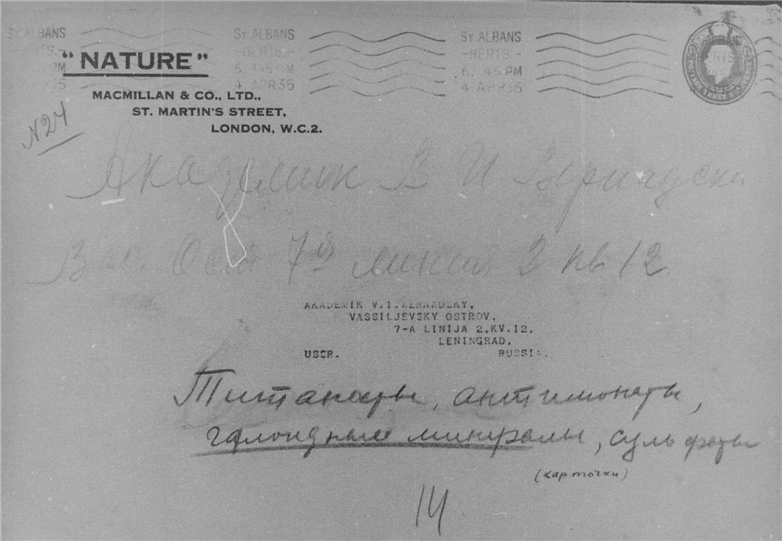 ST ALBANS
ST ALBANS
ST ALBANS
HERTS.
-HERTS-
-HERTS-
PM
6.45 PM
6.45 PM
35
4 APR 35
4 APR 35
"NATURE"
MACMILLAN & CO., LTD.,
ST. MARTIN'S STREET,
LONDON, W.C.2.
N24
Академик В И Вернадски
Вас. Остр 7я линия 2 кв 12
AKADEMIK V.I.WERNADSKY,
VASSILJEVSKY OSTROV,
7-A LINIJA 2,KV.12,
LENINGRAD,
USSR. RUSSIA.
Титанаты, антимонаты,
галоидные минералы, сульфаты
(карточки)
14